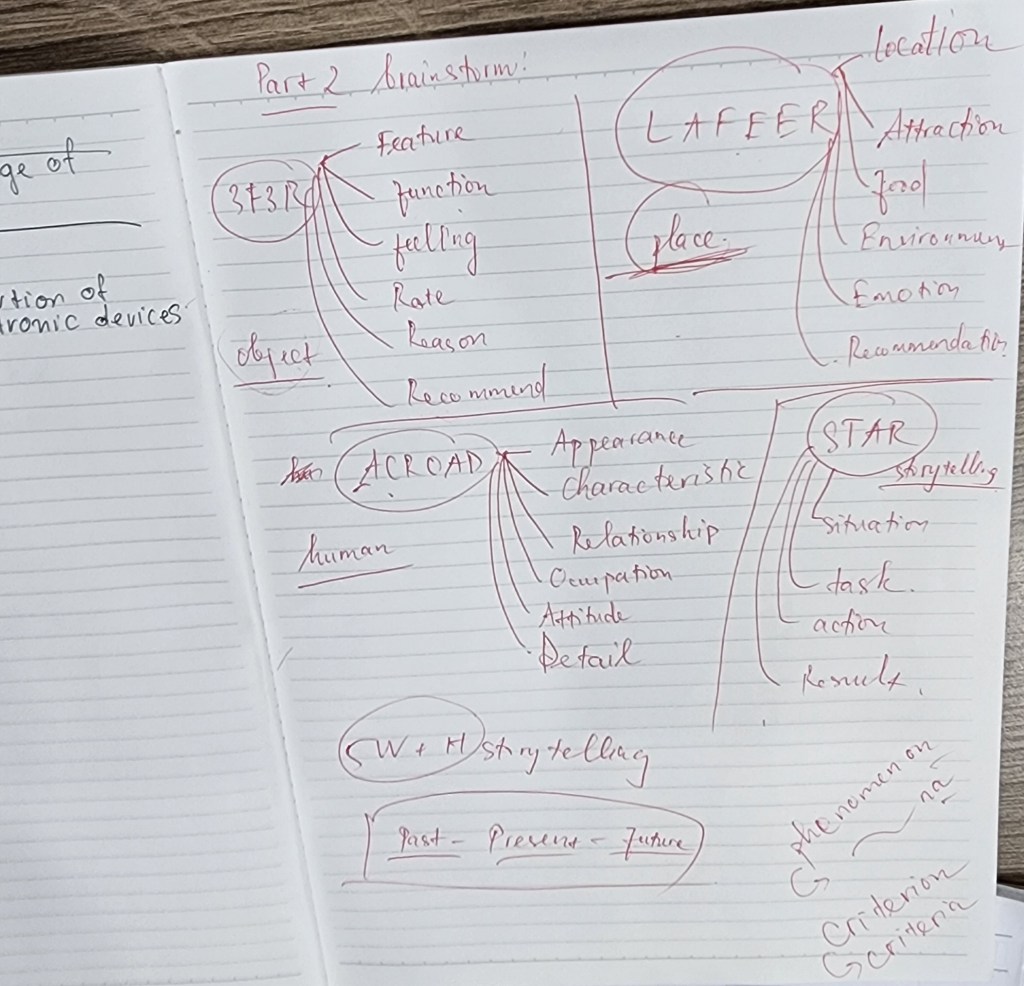 ge of
tion of
ronic devices
Part 2 brainstorm:
3F3R
Feature
function
feelling
Rate
Reason
Recommend
object
LAFEER
place.
location
Attraction
food
Environment
Emotion
Recommendation
ACROAD
human
Appearance
Characteristic
Relationship
Occupation
Attitude
Detail
STAR
storytelling
situation
task.
action
Result.
5W + H storytelling
Past - Present - Future
phenomenon
na
Criterion
criteria